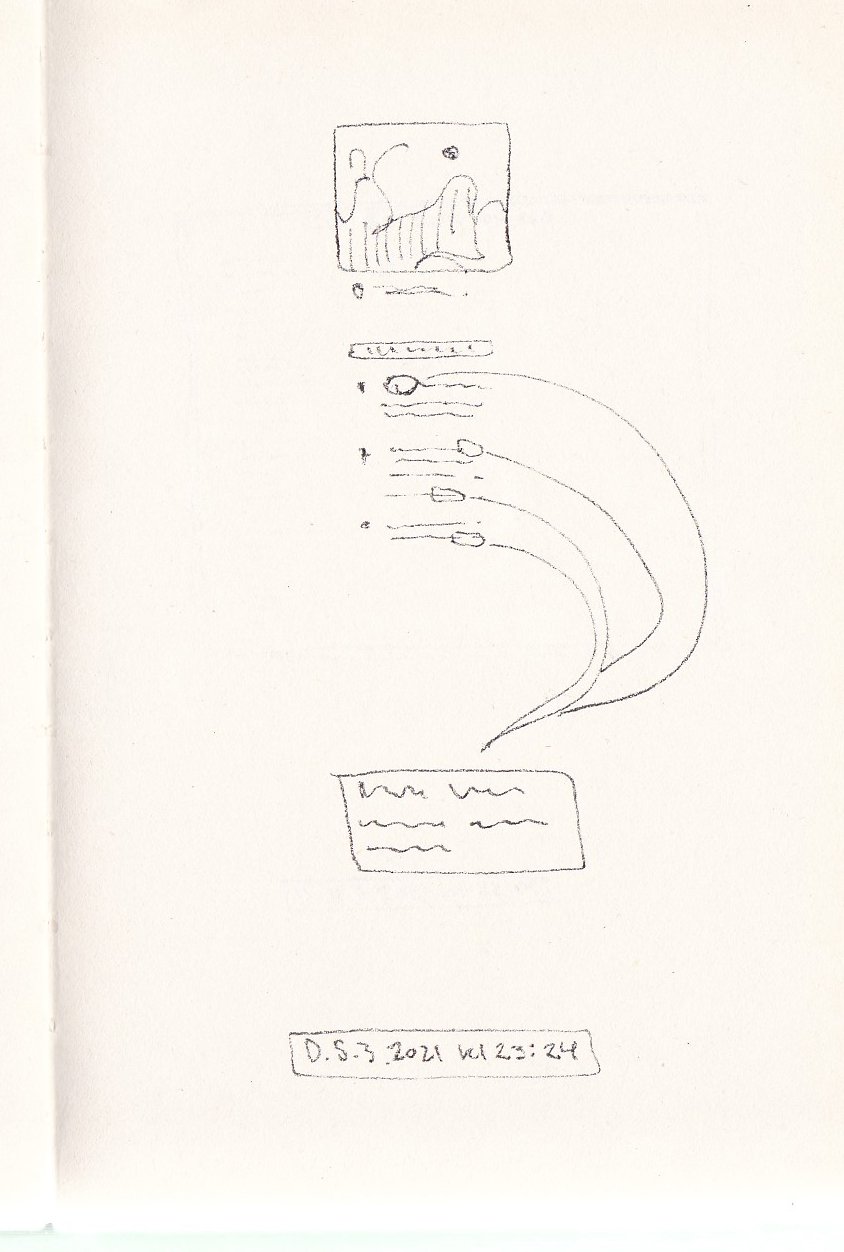 D. 5.3 2021 kl 23:24